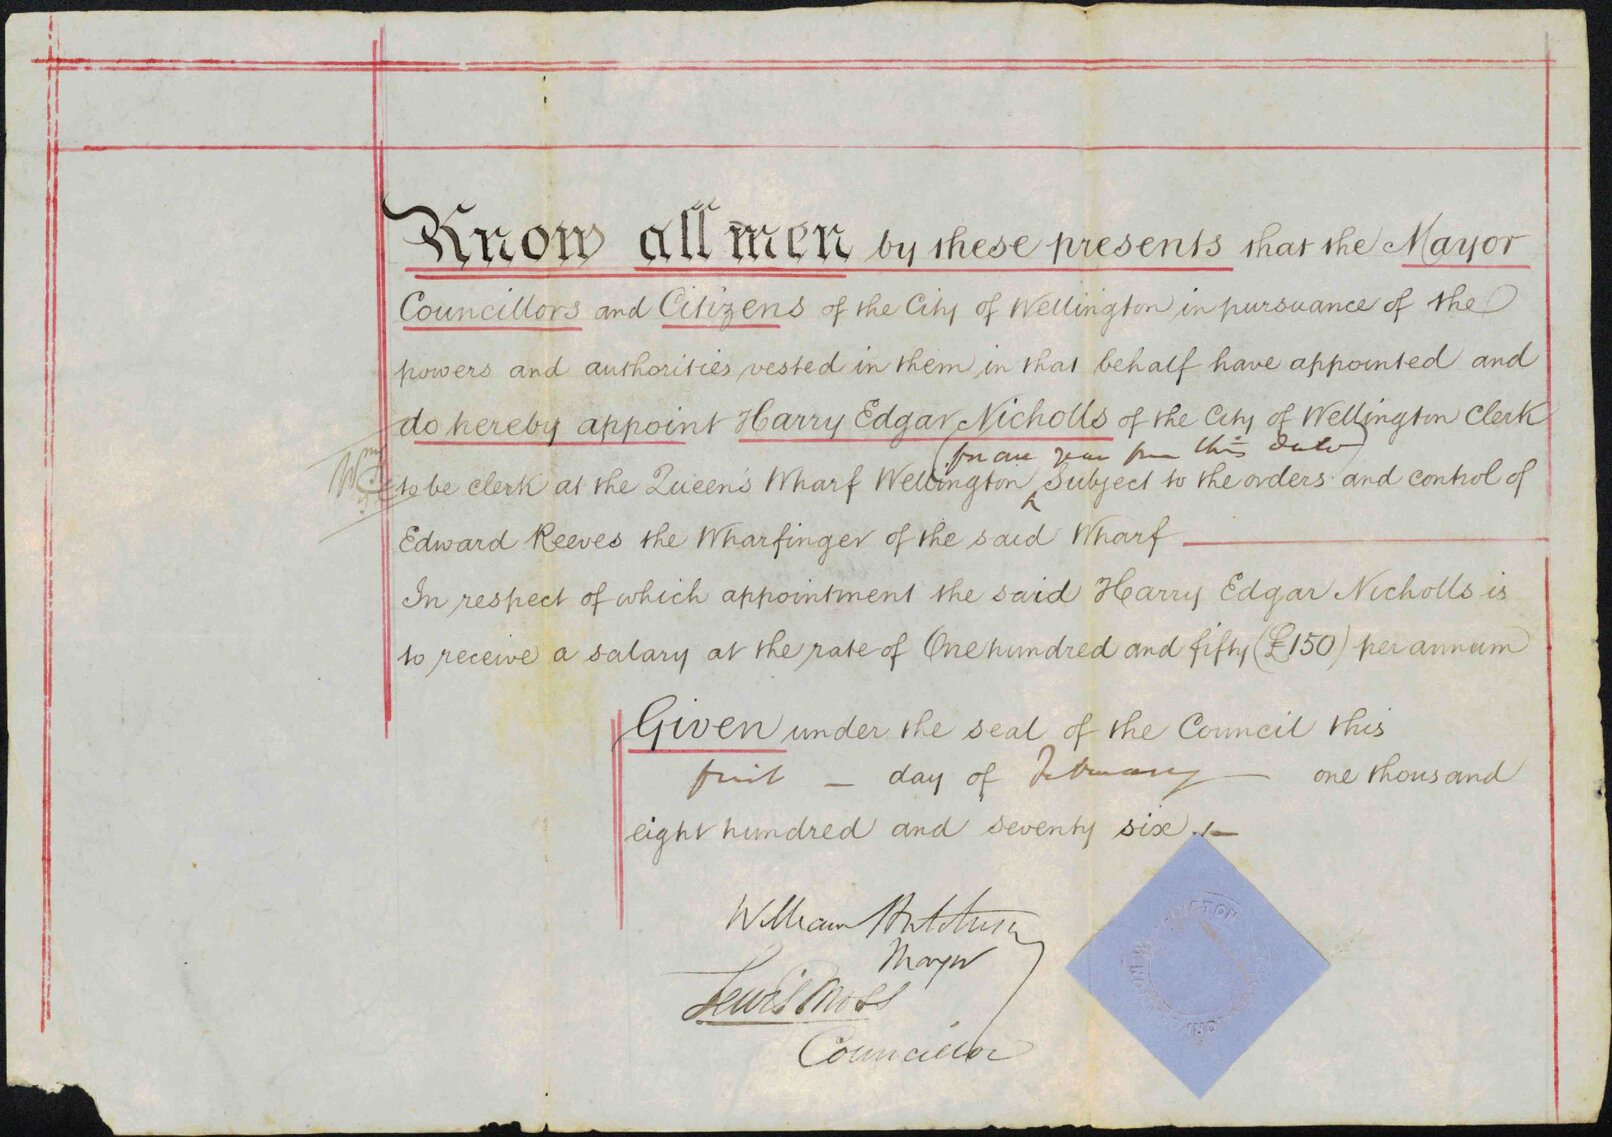 Know all men by these presents that the Mayor
Councillors and Citizens of the City of Wellington in pursuance of the
powers and authorities vested in them in that behalf have appointed and
do hereby appoint Harry Edgar Nicholls of the City of Wellington Clerk
(for one year from this date)
to be clerk at the Queen's Wharf Wellington ^ Subject to the orders and control of
Edward Reeves the Wharfinger of the said Wharf
In respect of which appointment the said Harry Edgar Nicholls is
to receive a salary at the rate of One hundred and fifty (£150) per annum
Given under the seal of the Council this
first — day of February — one thousand
eight hundred and seventy six . —
William Hutchison
Mayor
Lewis Moss
Councillor